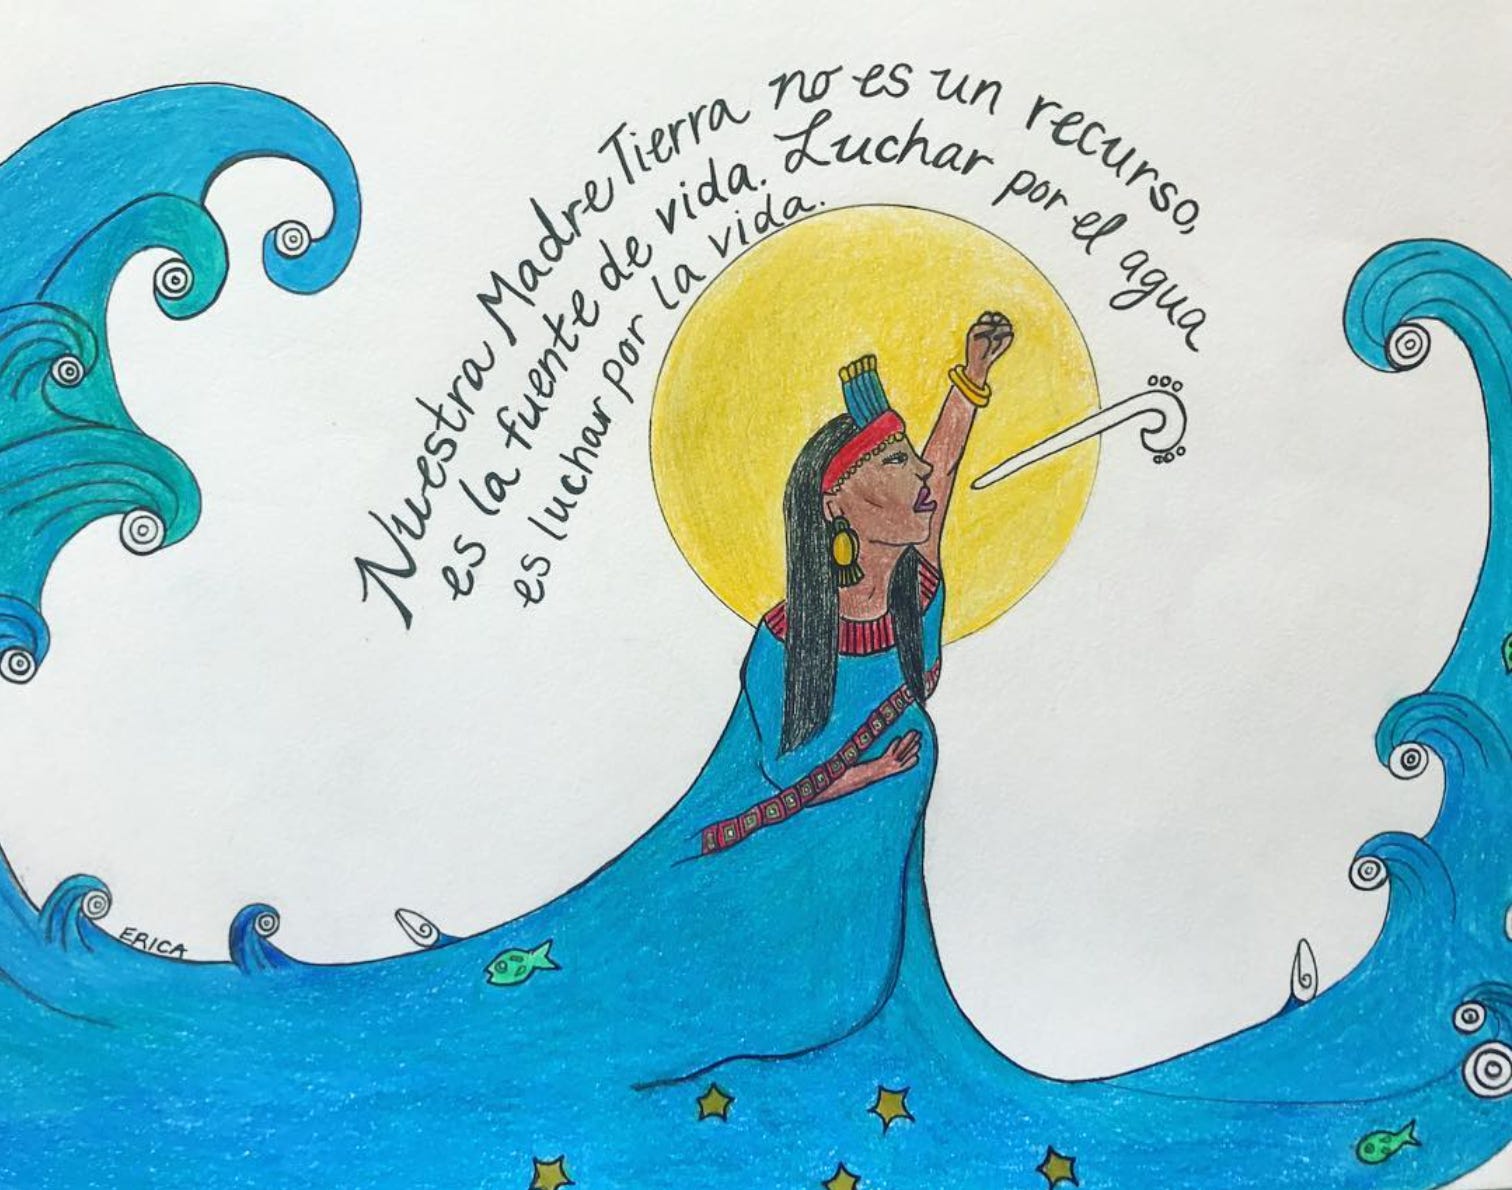 Nuestra Madre Tierra no es un recurso,
es la fuente de vida. Luchar por el agua
es luchar por la vida.
ERICA